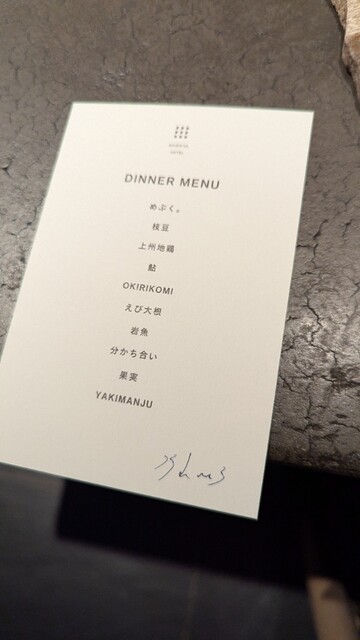 DINNER MENU
めぶく。
枝豆
上州地鶏
鮎
OKIRIKOMI
えび大根
岩魚
分かち合い
果実
YAKIMANJU